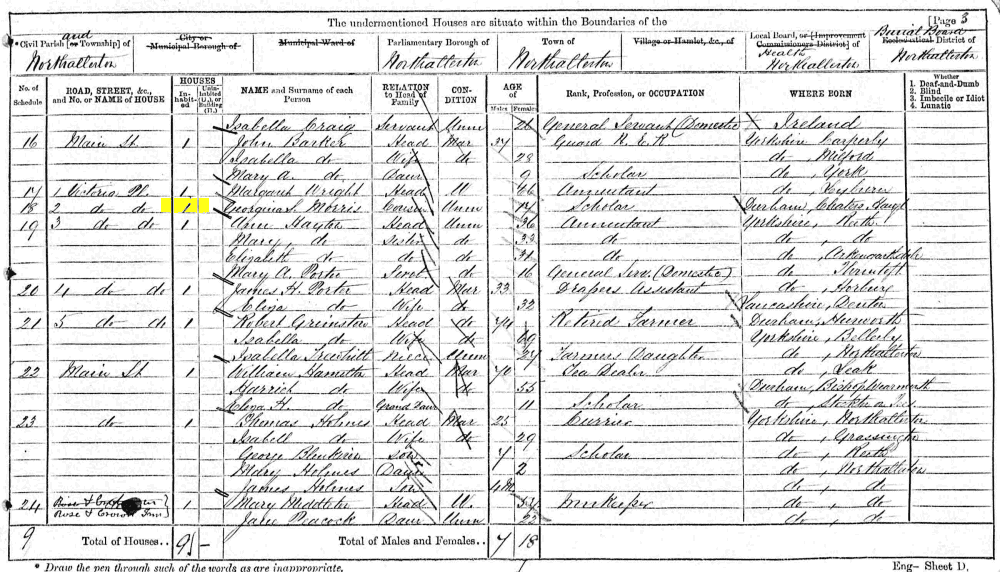 The undermentioned Houses are situate within the Boundaries of the [Page 3
*Civil Parish [or Township] of and Northallerton City or Municipal Borough of Municipal Ward of Parliamentary Borough of Northallerton Town of Northallerton Village or Hamlet, &c., of Local Board, or [Improvement Commissioners District] of Health Northallerton Burial Board Ecclesiastical District of Northallerton
No. of Schedule ROAD, STREET, &c., and No. or NAME of HOUSE HOUSES Inhabited Uninhabited (U.), or Building (B.) NAME and Surname of each Person RELATION to Head of Family CONDITION AGE of Males Females Rank, Profession, or OCCUPATION WHERE BORN Whether 1. Deaf-and-Dumb 2. Blind 3. Imbecile or Idiot 4. Lunatic
Isabella Craig Servant Unm 26 General Servant (Domestic) Ireland
16 Main St 1 John Barker Head Mar 34 Guard R. Yorkshire Carperby
Isabella do Wife do 28 do, Milford
Mary A. do Daur 9 Scholar do, York
17 1 Victoria Pl. 1 Margaret Wright Head W 66 Annuitant do, Leyburn
18 2 do do 1 Georgina S. Morris Cousin Unm 14 Scholar Durham,
19 3 do do 1 Ann Head Unm 36 Annuitant Yorkshire, Reeth
Mary, do Sister do 33 do do, do
Elizabeth do do do 31 do do, Arkengarthdale
Mary A. Porter Servt do 16 General Serv. (Domestic) do
20 4 do do 1 James H. Porter Head Mar 33 Drapers Assistant do, Horbury
Eliza do Wife do 32 Lancashire, Denton
21 5 do do 1 Robert Grimston Head do 74 Retired Farmer Durham, Hurworth
Isabella do Wife do 69 Yorkshire, Bellerby
Isabella Niece Unm 24 Farmers Daughter do, Northallerton
22 Main St 1 William Head Mar 70 Tea Dealer do, Leak
Harriet do Wife do 55 Durham, Bishopwearmouth
Eliza H. do Grand Daur 11 Scholar do, Stockton on Tees
23 do 1 Thomas Holmes Head Mar 25 Currier Yorkshire, Northallerton
Isabell do Wife do 29 do, Grassington
George Son 7 Scholar do, Reeth
Mary Holmes Daur 2 do, Northallerton
James Holmes Son 4 do, do
24 Rose & Crown Inn 1 Mary Middleton Head W. 54 Innkeeper do, do
Jane Peacock Daur Unm 23 do, do
9 Total of Houses.. 9 Total of Males and Females.. 7 18
* Draw the pen through such of the words as are inappropriate. Eng- Sheet D.